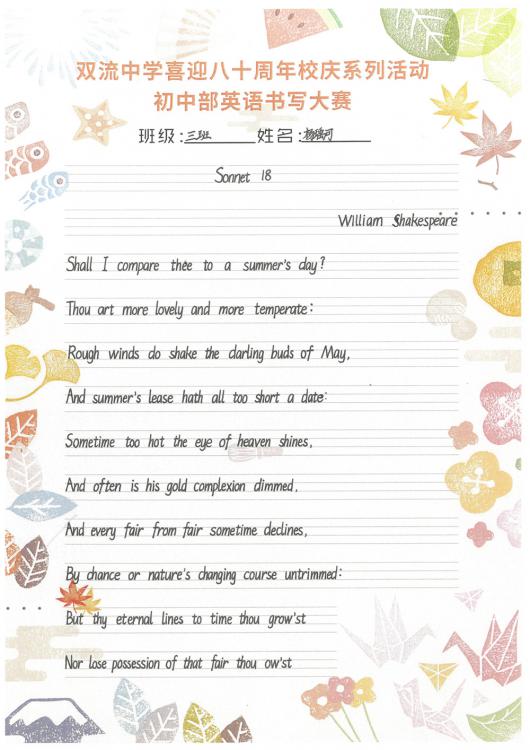 双流中学喜迎八十周年校庆系列活动
初中部英语书写大赛
班级:三班 姓名:
Sonnet 18
William Shakespeare
Shall I compare thee to a summer's day?
Thou art more lovely and more temperate:
Rough winds do shake the darling buds of May,
And summer's lease hath all too short a date:
Sometime too hot the eye of heaven shines,
And often is his gold complexion dimmed,
And every fair from fair sometime declines,
By chance or nature's changing course untrimmed:
But thy eternal lines to time thou grow'st
Nor lose possession of that fair thou ow'st